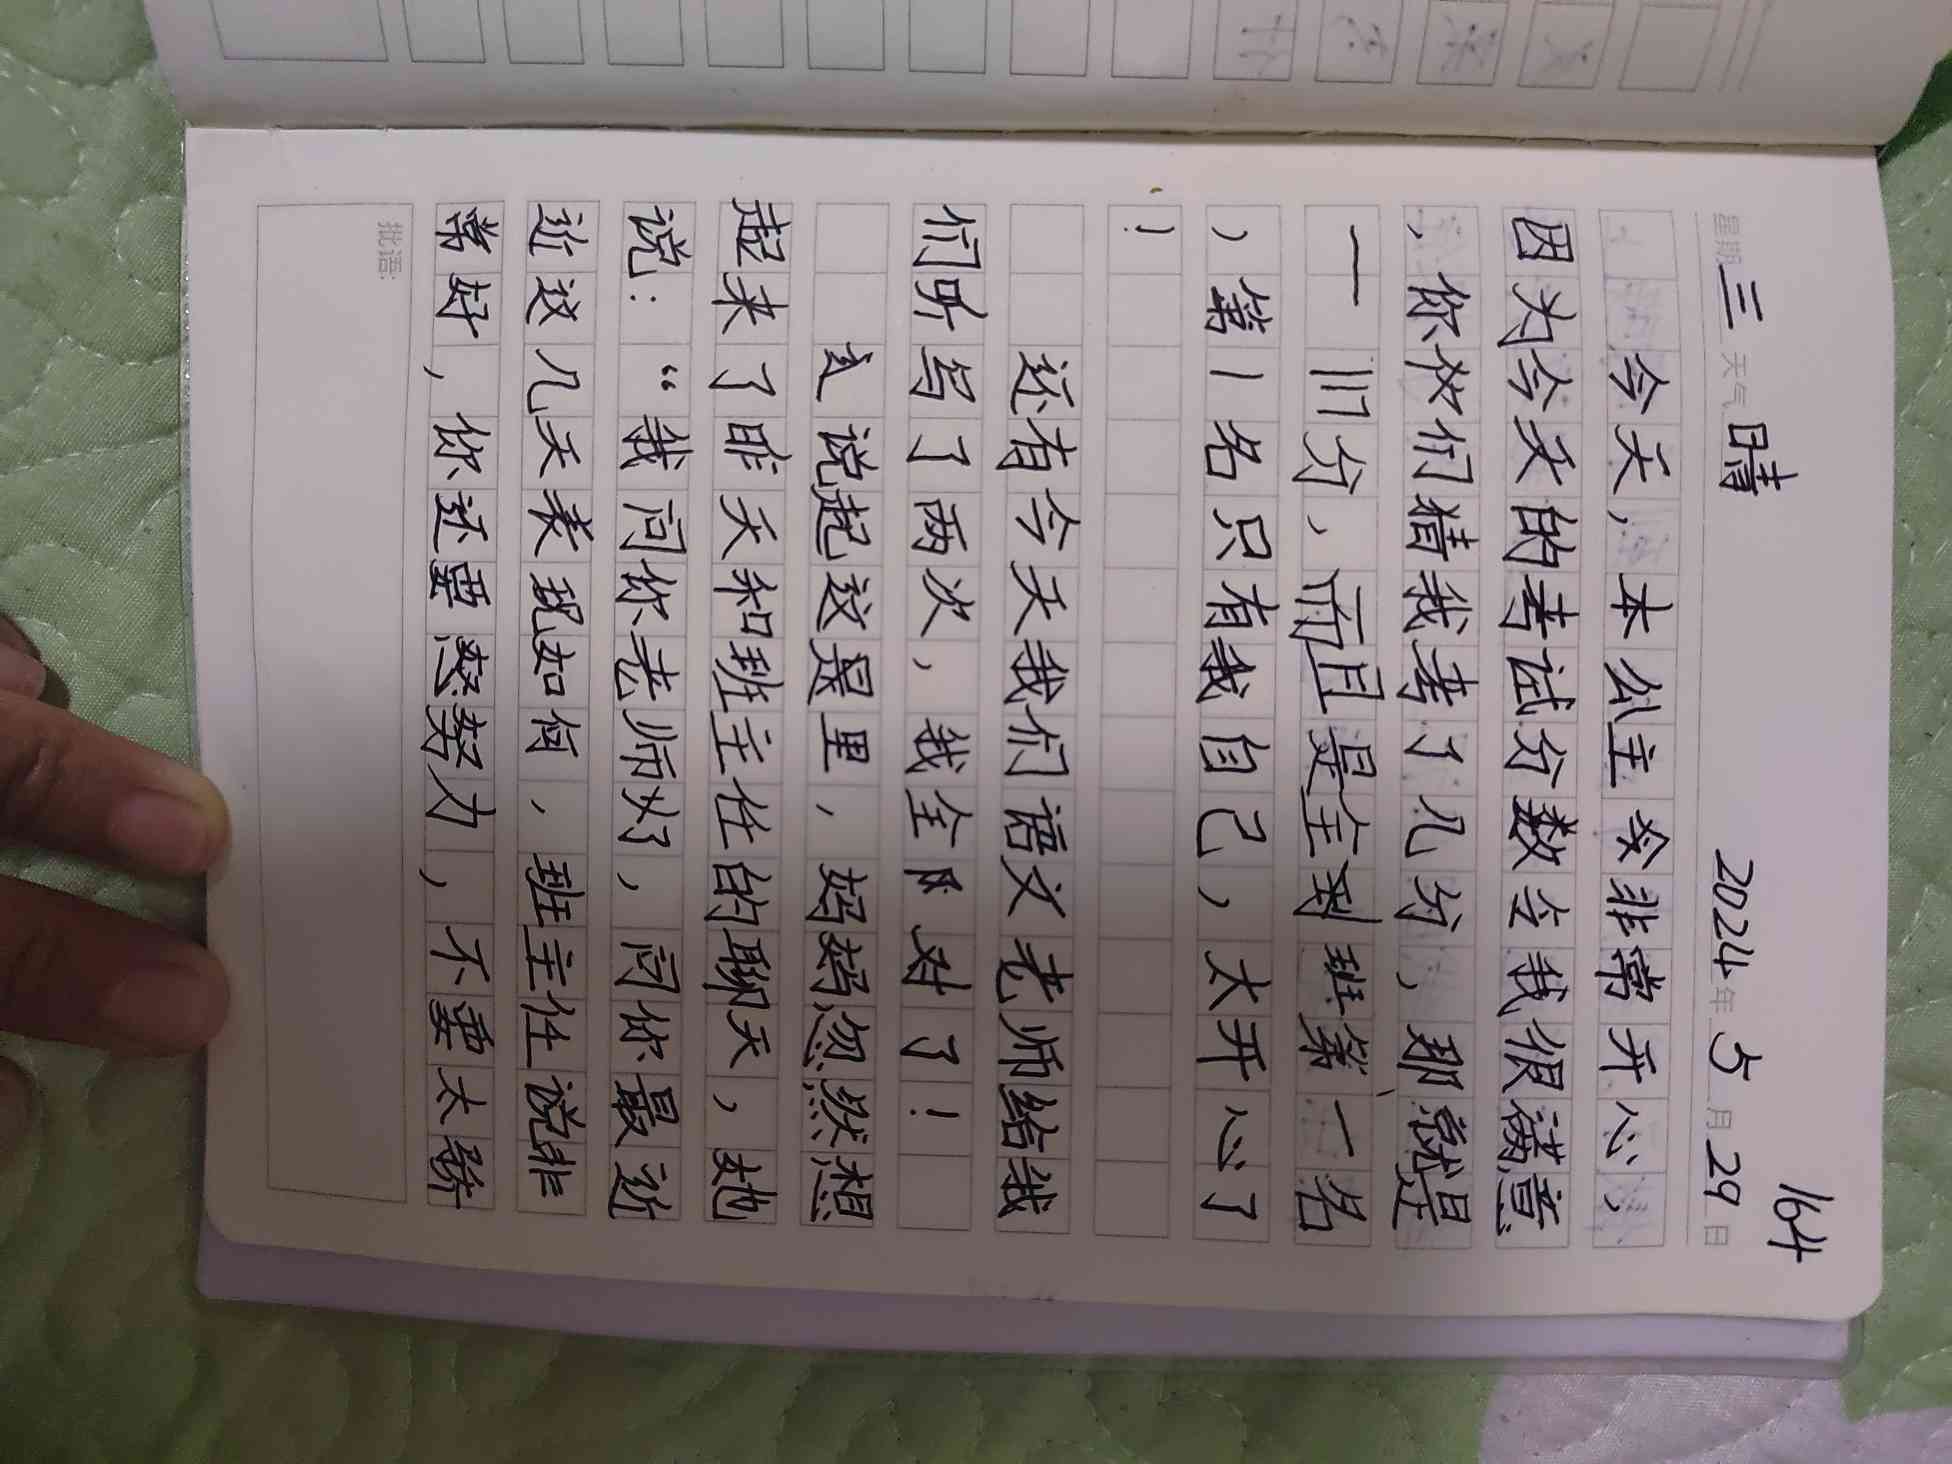 164
星期三 天气晴 2024年5月29日
今天，本公主非常开心，
因为今天的考试分数令我很满意
，你们猜我考了几分，那就是
一分，而且是全班第一名
，第1名只有我自己，太开心了
！
还有今天我们语文老师给我
们听写了两次，我全对了！
说起这里，妈妈忽然想
起来了昨天和班主任的聊天，她
说：“我问你老师好，问你最近
近这几天表现如何，班主任说非
常好，你还要努力，不要太骄
批语：